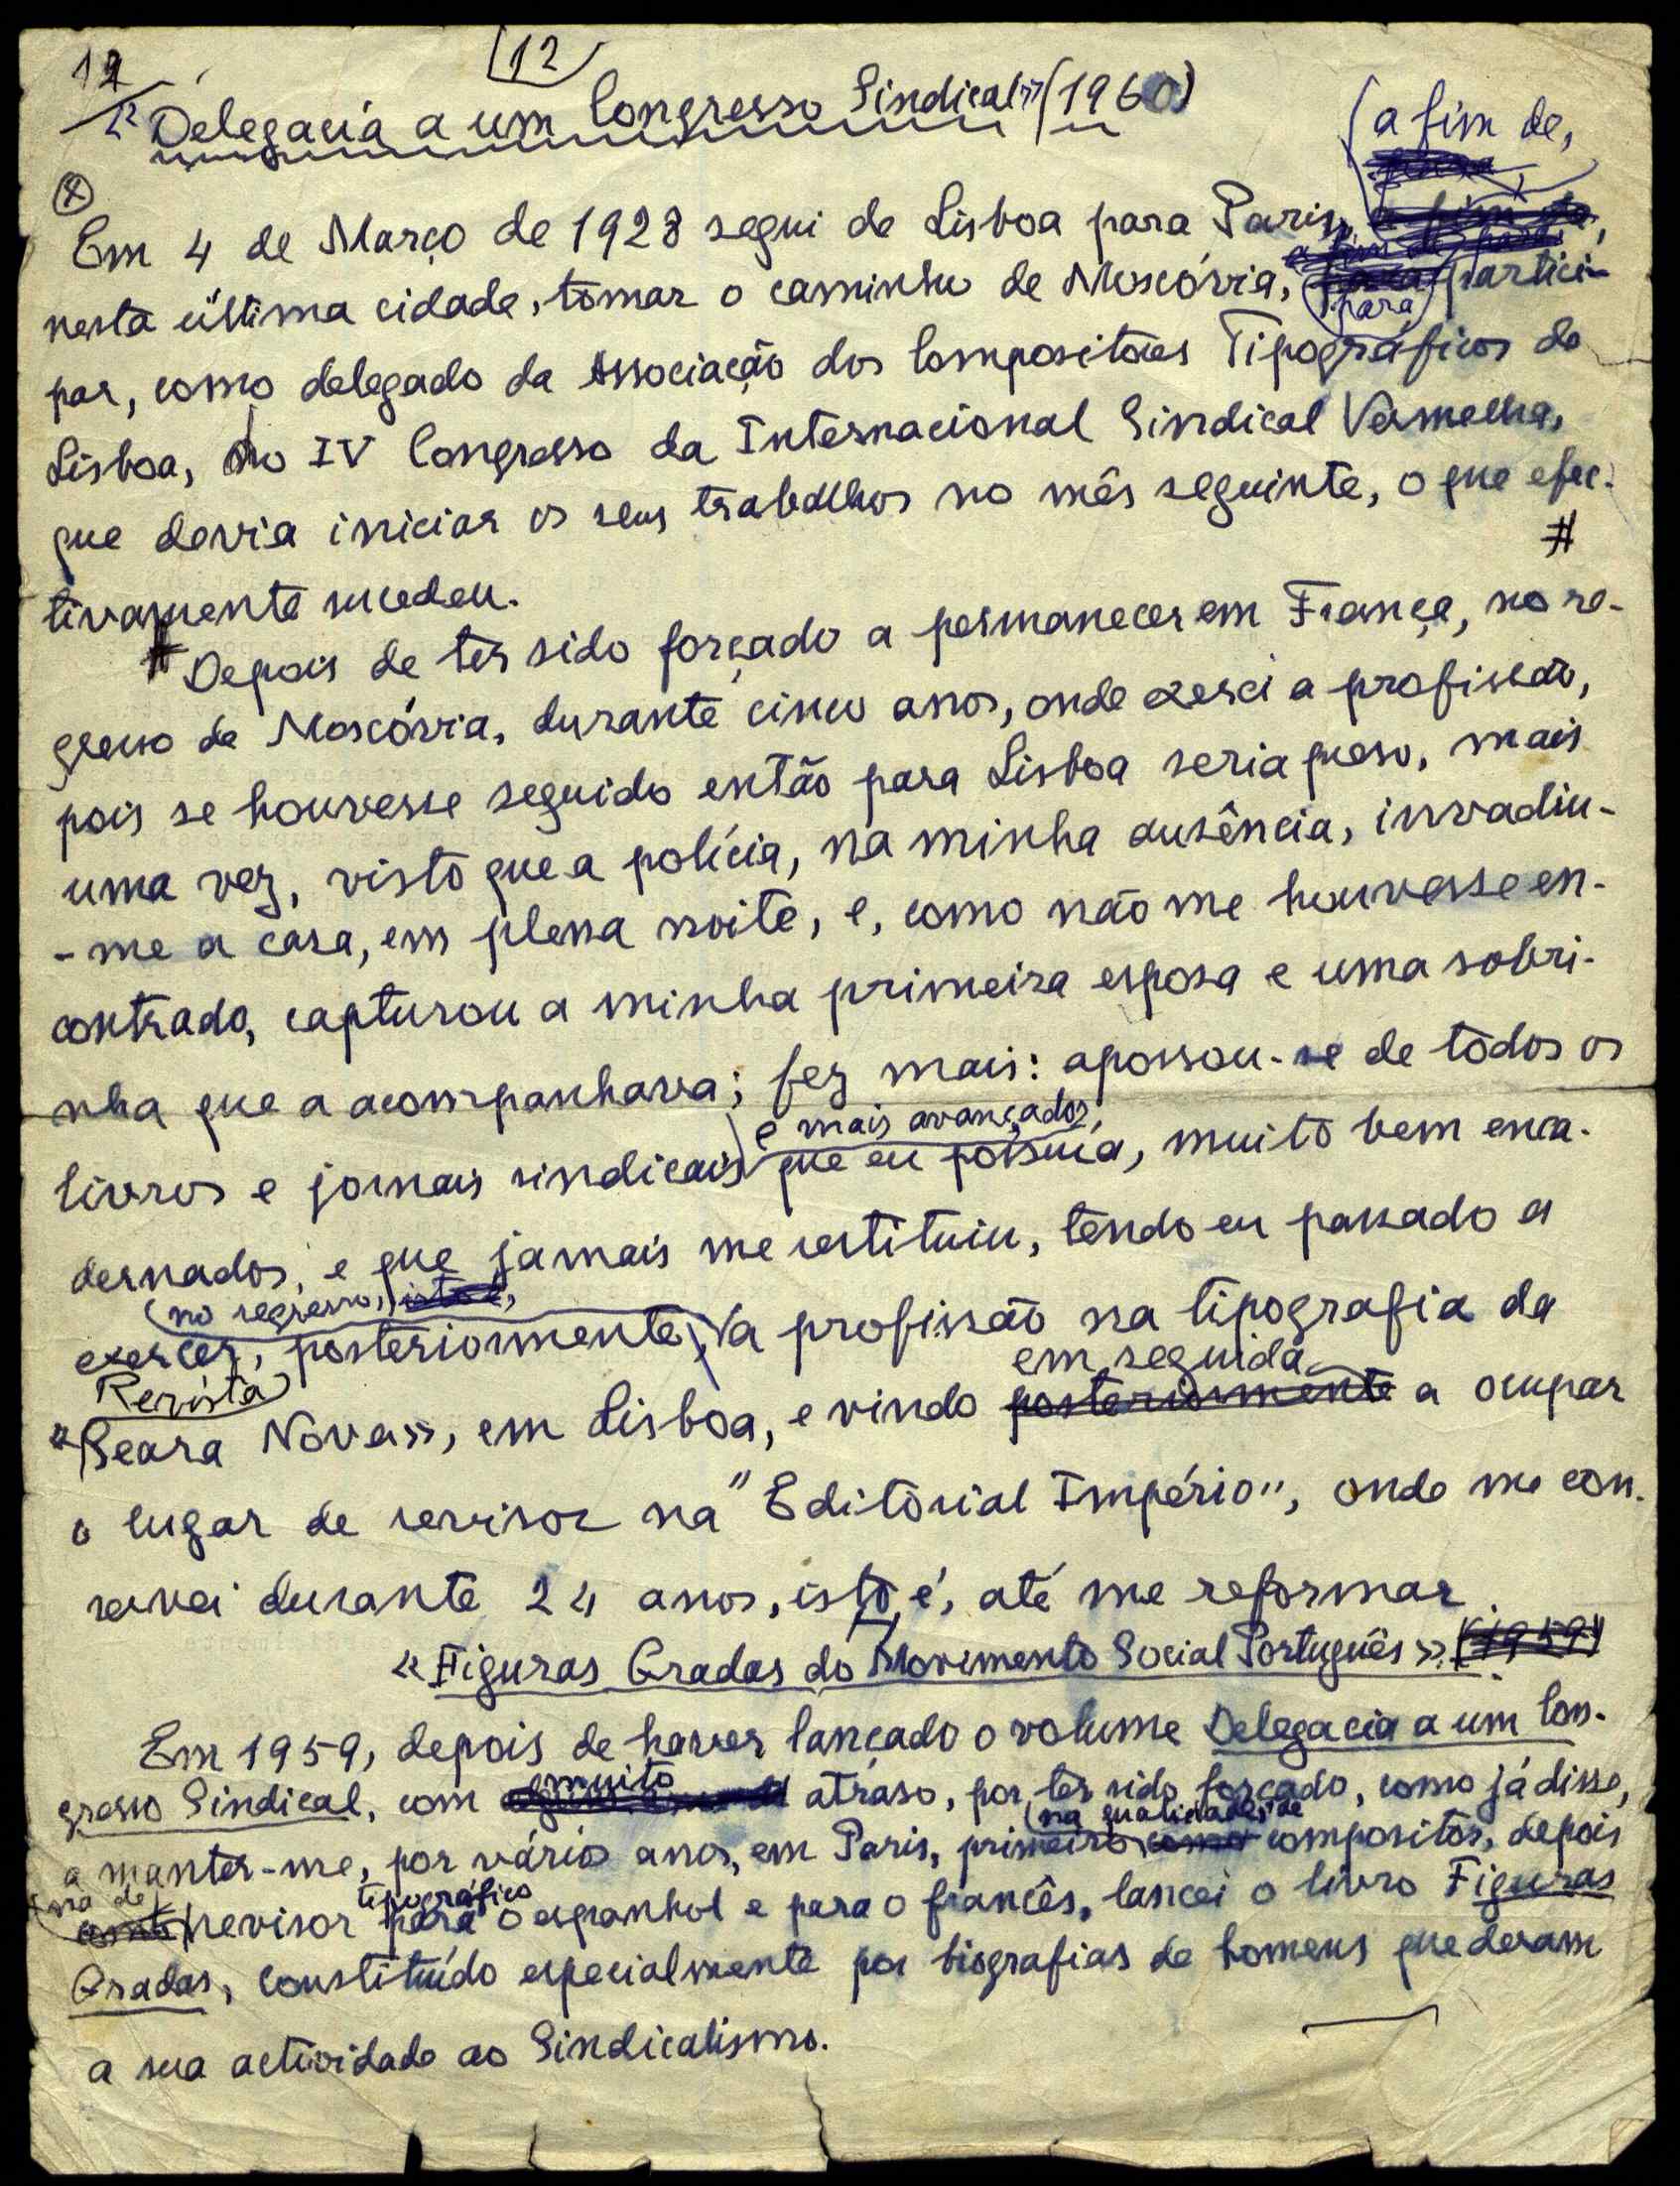 12
12
«Delegacia a um Congresso Sindical» (1960)
(a fim de,
Em 4 de Março de 1928 segui de Lisboa para Paris,
nesta última cidade, tomar o caminho de Moscóvia, (para) partici-
par, como delegado da Associação dos Compositores Tipográficos de
Lisboa, no IV Congresso da Internacional Sindical Vermelha,
que devia iniciar os seus trabalhos no mês seguinte, o que efec-
#
tivamente sucedeu.
# Depois de ter sido forçado a permanecer em França, no re-
gresso de Moscóvia, durante cinco anos, onde exerci a profissão,
pois se houvesse seguido então para Lisboa seria preso, mais
uma vez, visto que a polícia, na minha ausência, invadiu-
-me a casa, em plena noite, e, como não me houvesse en-
contrado, capturou a minha primeira esposa e uma sobri-
nha que a acompanhava; fez mais: apossou-se de todos os
e mais avançados
livros e jornais sindicais que eu possuía, muito bem enca-
dernados, e que jamais me restituiu, tendo eu passado a
(no regresso, isto é,
exercer, posteriormente, a profissão na tipografia da
Revista em seguida
«Seara Nova», em Lisboa, e vindo posteriormente a ocupar
o lugar de revisor na "Editorial Império", onde me con-
servei durante 24 anos, isto é, até me reformar.
«Figuras Gradas do Movimento Social Português» (1959)
Em 1959, depois de haver lançado o volume Delegacia a um Con-
muito
gresso Sindical, com atraso, por ter sido forçado, como já disse,
(na qualidade de
a manter-me, por vários anos, em Paris, primeiro como compositor, depois
(na de tipográfico
como revisor para o espanhol e para o francês, lancei o livro Figuras
Gradas, constituído especialmente por biografias de homens que deram
a sua actividade ao Sindicalismo.